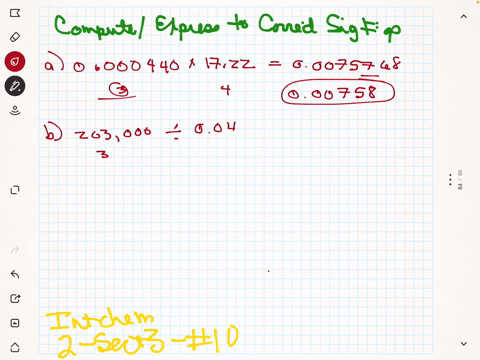 Compute/ Express to Correct Sig Figs
a) 0.000440 × 17.22 = 0.0075768
3 4 0.00758
b) 203,000 ÷ 0.04
3
Intchem
2-Sect3-#10
84 / 86